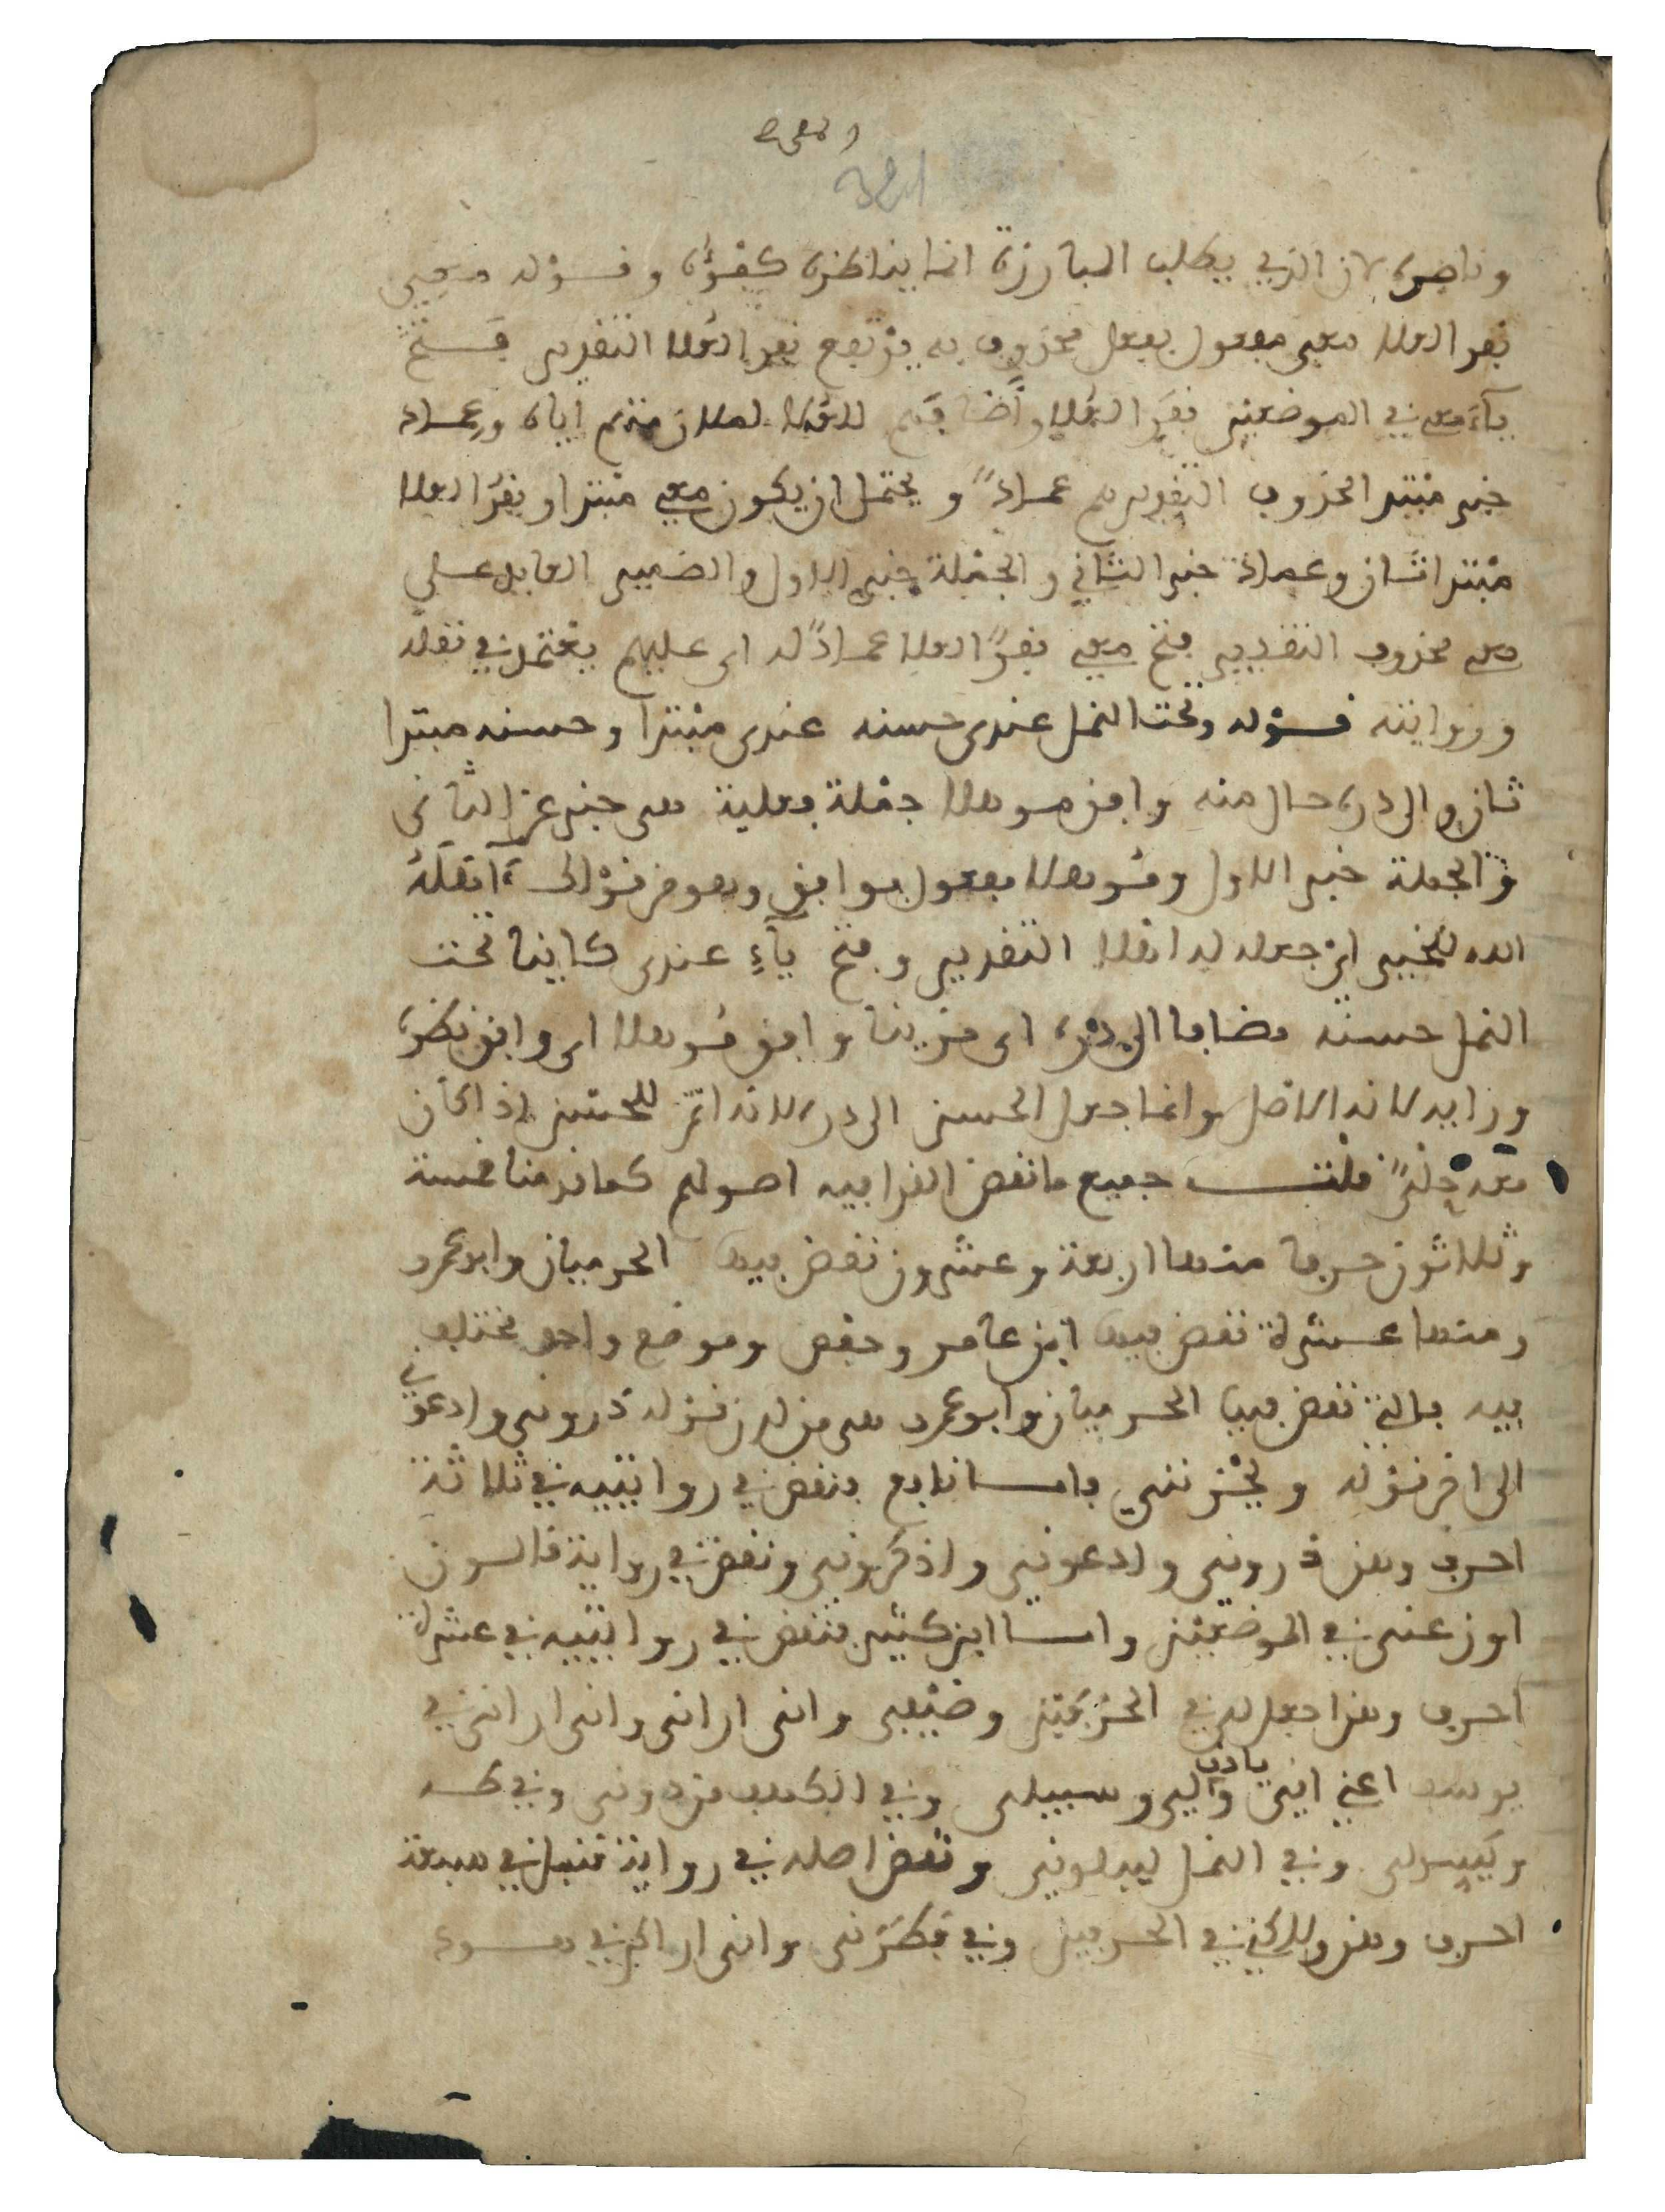 وناصره لان الذي يطلب المبارزة انما يناظره كفؤه وقوله معي
نفر العلا معي مفعول بفعل محذوف به يرتفع نفر العلا التقدير فتح
ياء معي في الموضعين نفر العلا واضافهم للعلا لملازمتهم اياه وعماد
خبر مبتدا محذوف التقدير هم عماد ويحتمل ان يكون معي مبتدا ونفر العلا
مبتدا ثان وعماد خبر الثاني والجملة خبر الاول والضمير العايد على
معي محذوف التقدير فتح معي نفر العلا عماد له اي عليهم يعتمد في نقله
وروايته قوله وتحت النمل عندي حسنه عندي مبتدا وحسنه مبتدا
ثان والى دره حال منه وافق موهلا جملة فعلية هي خبر عن الثاني
والجملة خبر الاول وموهلا مفعول بوافق وهو من قولك اهله
الله للخير اي جعله له اهلا التقدير وفتح ياء عندي كاينا تحت
النمل حسنه مضافا الى دره اي مزينا وافق موهلا اي وافق نظره
وزايد لانه الاصل وانما جعل الحسن الى در لانه اتم للحسن اذا كان
معه حلي قلت جميع ما نقض القرا فيه اصولهم كما قدمنا خمسة
وثلاثون حرفا منها اربعة وعشرون نقض فيها الحرميان وابو عمرو
ومنها عشرة نقض فيها ابن عامر وحفص وموضع واحد مختلف
فيه فالتي نقض فيها الحرميان وابو عمرو هي من لدن قوله ذروني وادعوني
الى اخر قوله ويحزنني فاما نافع فنقض في روايتيه في ثلاثة
احرف وهن ذروني وادعوني واذكروني ونقض في رواية قالون
اوزعني في الموضعين واما ابن كثير فنقض في روايتيه في عشرة
احرف وهن اجعل لي في الحرفين وضيفي واني اراني واني اراني في
يوسف اعني اني ياذن لي وسبيلي وفي الكهف من دوني وفي طه
ويسر لي وفي النمل ليبلوني ونقض اصله في رواية قنبل في سبعة
احرف وهن ولكني في الحرفين وفي فطرني واني اراكم في هود